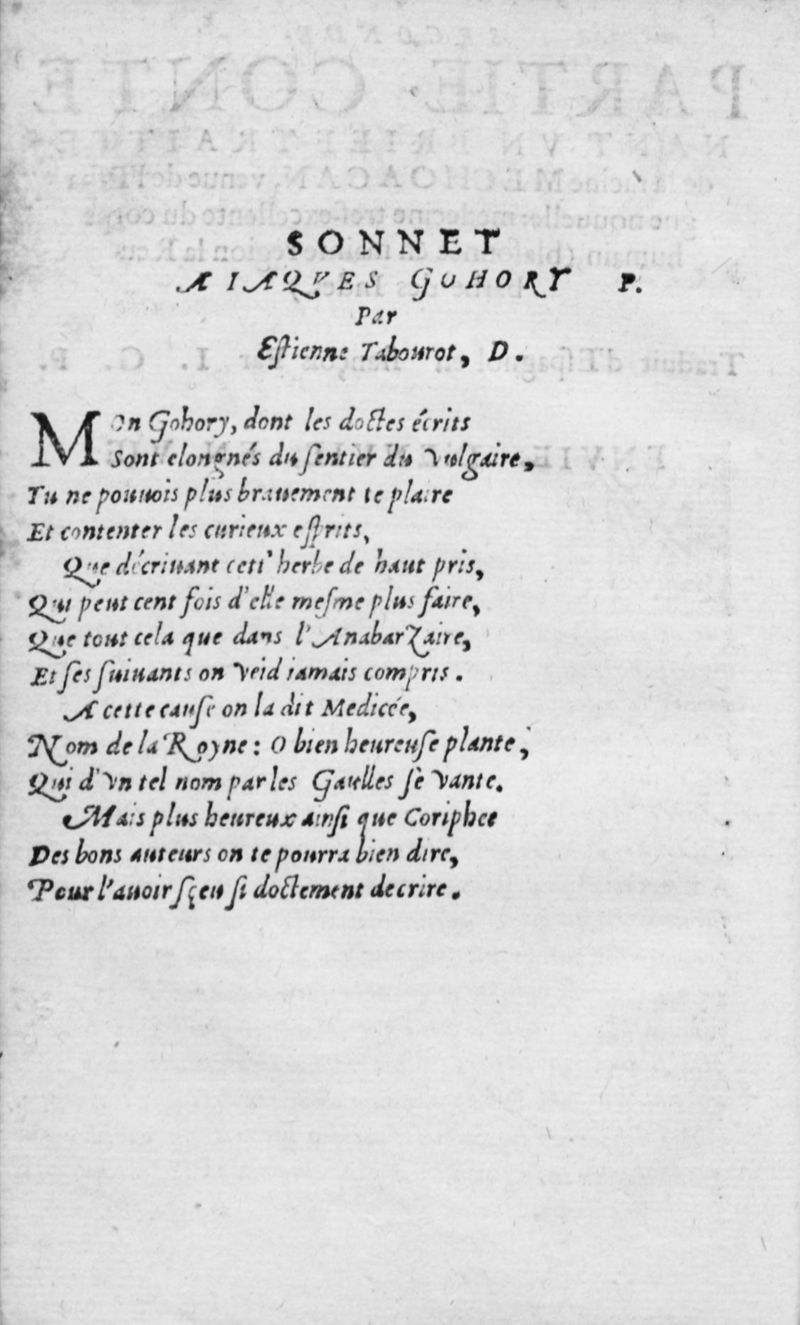 SONNET
A IAQVES GOHORY P.
Par
Estienne Tabourot, D.
MOn Gohory, dont les doctes écrits
Sont elongnés du sentier du Vulgaire,
Tu ne pouuois plus brauement te plaire
Et contenter les curieux esprits,
Que décriuant cett' herbe de haut pris,
Qui peut cent fois d'elle mesme plus faire,
Que tout cela que dans l'Anabarzaire,
Et ses suiuants on veid iamais compris.
A cette cause on la dit Medicée,
Nom de la Royne: O bien heureuse plante,
Qui d'vn tel nom par les Gaulles se vante.
Mais plus heureux ainsi que Coriphee
Des bons auteurs on te pourra bien dire,
Pour l'auoir sçeu si doctement decrire.